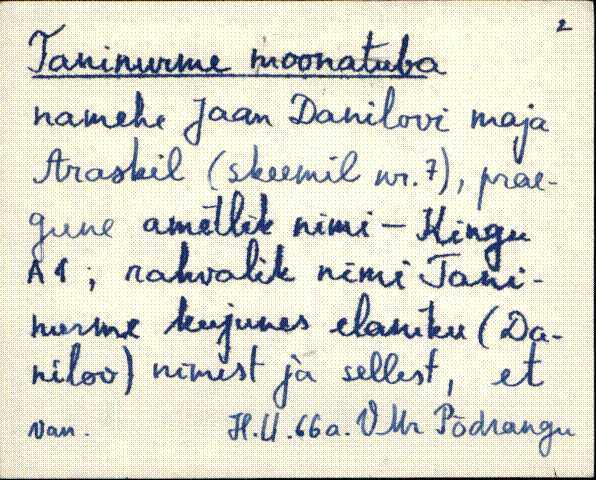 2
Taninurme moonatuba
namehe Jaan Danilovi maja
Araskil (skeemil nr. 7), prae-
gune ametlik nimi – Kingu
A 1; rahvalik nimi Tani-
nurme kujunes elaniku (Da-
nilov) nimist ja sellest, et
van. H.U. 66a. VMr Põdrangu